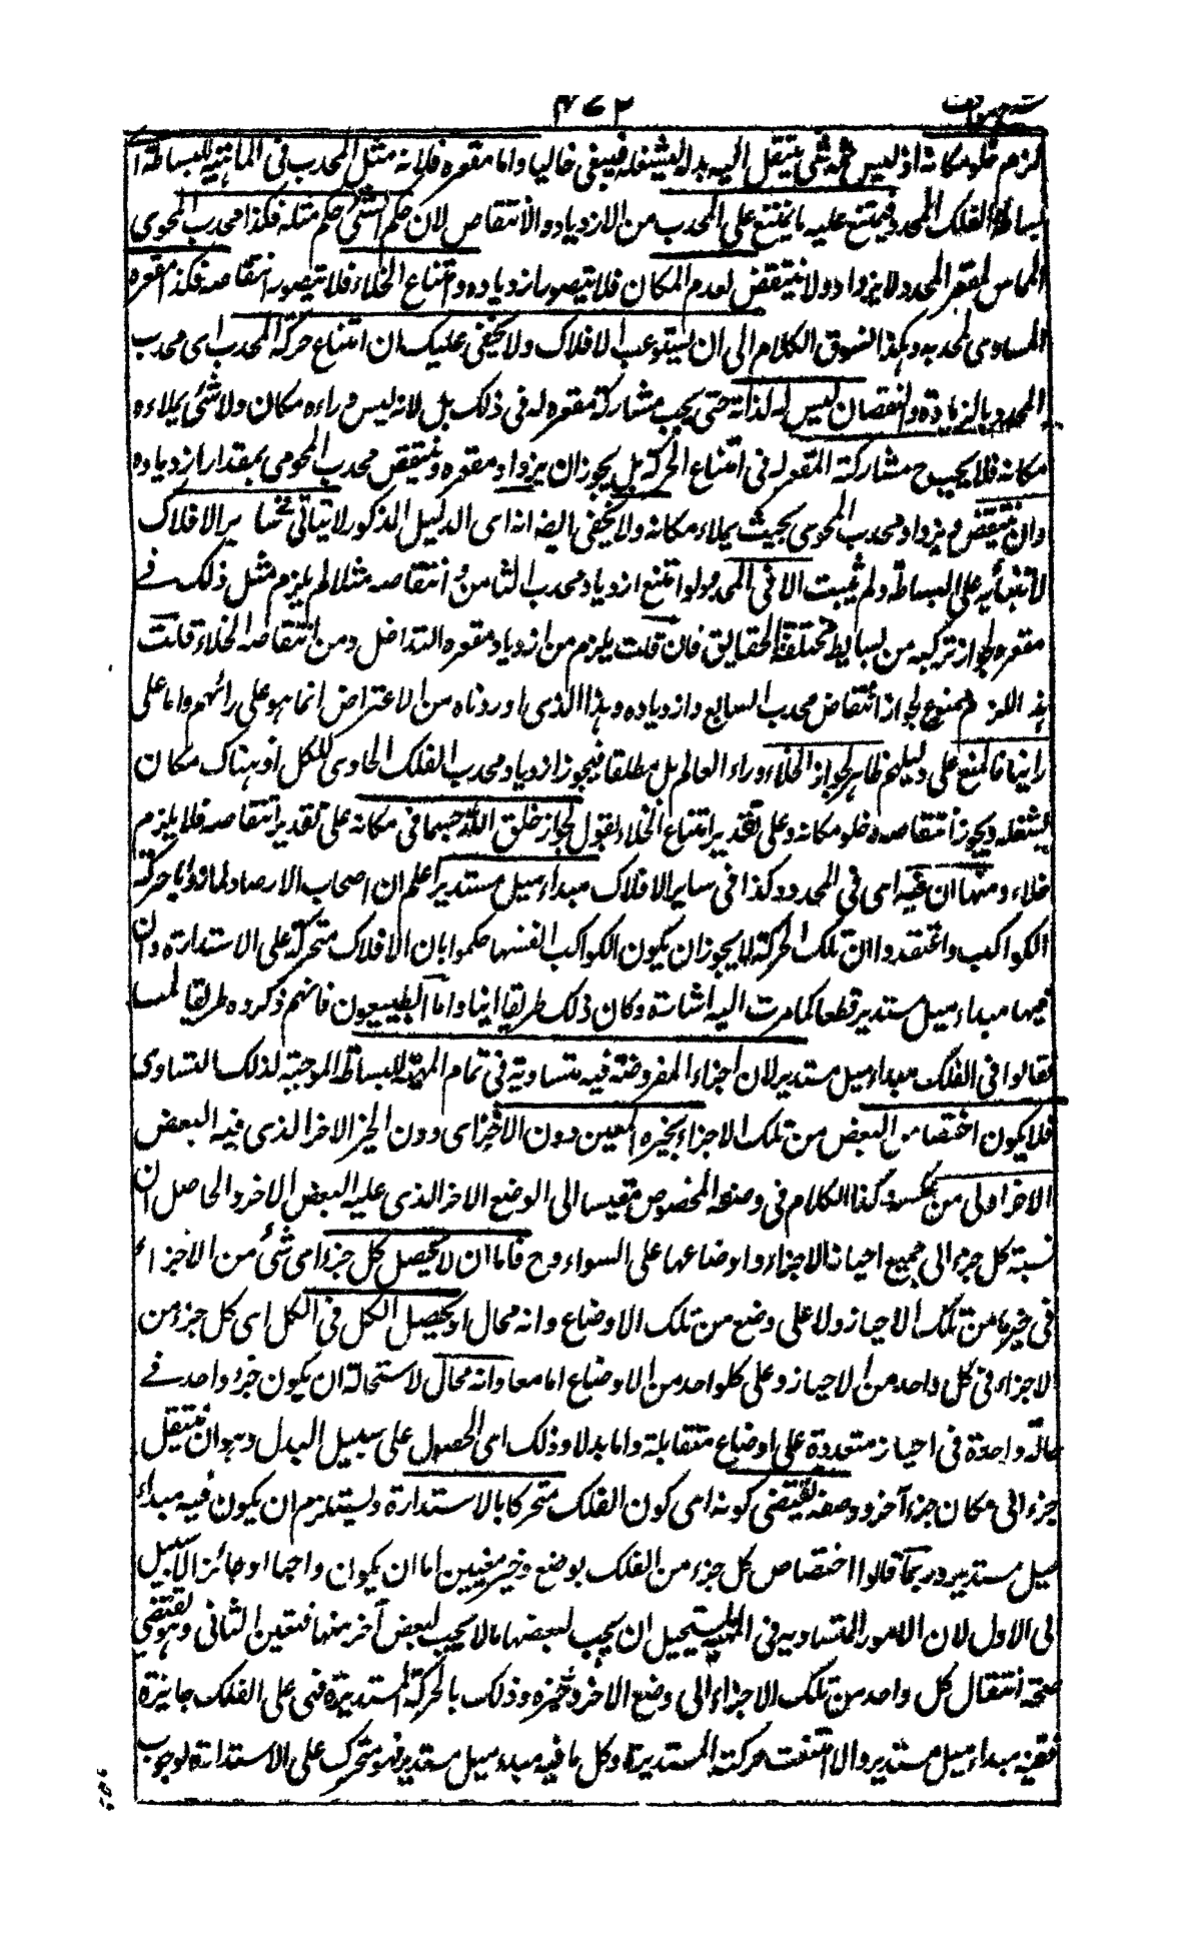 شرح مواقف ٤٧٢
لزم خلو مكانه اذ ليس ثمه شئ ينتقل اليه بدله ليشغله فيبقى خاليا واما مقعره فلانه مثل المحدب فى الماهية لبساطة ا
لبساطة الفلك المحدد فيمتنع عليه ما يمتنع على المحدب من الازدياد والانتقاص لان حكم الشئ حكم مثله فكذا محدب المحوى
المماس لمقعر المحدد لا يزداد ولا ينتقض لعدم المكان فلا يتصور ازدياده وامتناع الخلاء فلا يتصور انتقاصه فكذا مقعره
المساوى لمحدبه وهكذا نسوق الكلام الى ان يستوعب الافلاك ولا يخفى عليك ان امتناع حركة المحدب اى محدب
المحدد بالزيادة والنقصان ليس له لذاته حتى يجب مشاركة مقعره له فى ذلك بل لانه ليس وراءه مكان ولا شئ يملاءه
مكانه فلا يجب ح مشاركة المقعر له فى امتناع الحركة بل يجوز ان يزداد مقعره وينتقص محدب المحوى بمقدار ازدياده
وان ينتقص ويزداد محدب المحوى بحيث يملاء مكانه ولا يخفى ايضا انه اى الدليل المذكور لا يتاتى فى ساير الافلاك
لابتنائه على البساطة ولم يثبت الا فى المحدد ولو امتنع ازدياد محدب الثامن و انتقاصه مثلا لم يلزم مثل ذلك فے
مقعره لجواز تركبه من بسايط مختلفة الحقايق فان قلت يلزم من ازدياد مقعره التداخل ومن انتقاصه الخلاء قلت
هذا اللزوم ممنوع لجواز انتقاص محدب السابع وازدياده وهذا الذى اوردناه من الاعتراض انما هو على رائهم واما على
راينا فالمنع على دليلهم ظاهر لجواز الخلاء وراء العالم بل مطلقا فيجوز ازدياد محدب الفلك الحاوى للكل اذ هناك مكان
يشغله ويجوز انتقاصه وخلو مكانه وعلى تقدير امتناع الخلاء نقول لجواز خلق الله جسما فى مكانه على تقدير انتقاصه فلا يلزم
خلاء ومنها ان فيه اى فى المحدد وكذا فى ساير الافلاك مبداء ميل مستدير اعلم ان اصحاب الارصاد لما راؤا حركة
الكواكب واعتقدوا ان تلك الحركة لا يجوز ان يكون الكواكب انفسها حكموا بان الافلاك متحركة على الاستدارة وان
فيها مبداء ميل مستدير قطعا كما مرت اليه اشارة وكان ذلك طريقا انيا واما الطبيعيون فانهم ذكروه طريقا لميا
فقالوا فى الفلك مبداء ميل مستدير لان اجزاءه المفروضة فيه متساوية فى تمام المهية للبساطة الموجبة لذلك التساوى
فلا يكون اختصاص البعض من تلك الاجزاء بحيزه المعين دون الاخر اى دون الحيز الاخر الذى فيه البعض
الاخر اولى من عكسه وكذا الكلام فى وضعه المخصوص مقيسا الى الوضع الاخر الذى عليه البعض الاخر والحاصل ان
نسبة كل جزء الى جميع احياز الاجزاء واوضاعها على السواء وح فاما ان لا يحصل كل جزء اى شئ من الاجزاء
فى حيز ما من تلك الاحياز ولا على وضع من تلك الاوضاع وانه محال او يحصل الكل فى الكل اى كل جزء من
الاجزاء فى كل واحد من الاحياز وعلى كلواحد من الاوضاع اما معا وانه محال لاستحالة ان يكون جزء واحد فے
حالة واحدة فى احياز متعددة على اوضاع متقابلة واما بدلا وذلك اى الحصول على سبيل البدل وهو ان ينتقل
جزء الى مكان جزء آخر ووضعه يقتضى كونه اى كون الفلك متحركا بالاستدارة ويستلزم ان يكون فيه مبداء
ميل مستدير وربما قالوا اختصاص كل جزء من الفلك بوضع وحيز معينين اما ان يكون واجبا او جائزا لا سبيل
الى الاول لان الامور المتساوية فى المهية يستحيل ان يجب لبعضها ما لا يجب لبعض آخر منها فتعين الثانى وهو يقتضى
صحة انتقال كل واحد من تلك الاجزاء الى وضع الاخر وحيزه وذلك بالحركة المستديرة فهى على الفلك جائزة
ففيه مبداء ميل مستدير والا امتنعت حركته المستديرة وكل ما فيه مبدء ميل مستدير فهو متحرك على الاستدارة لوجوب